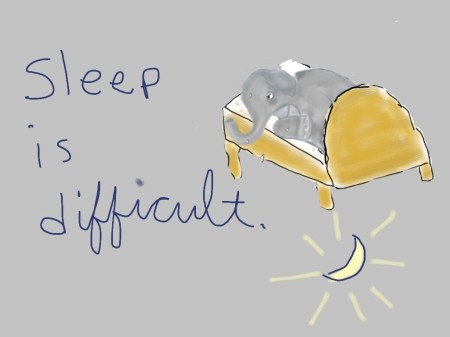 Sleep
is
difficult.